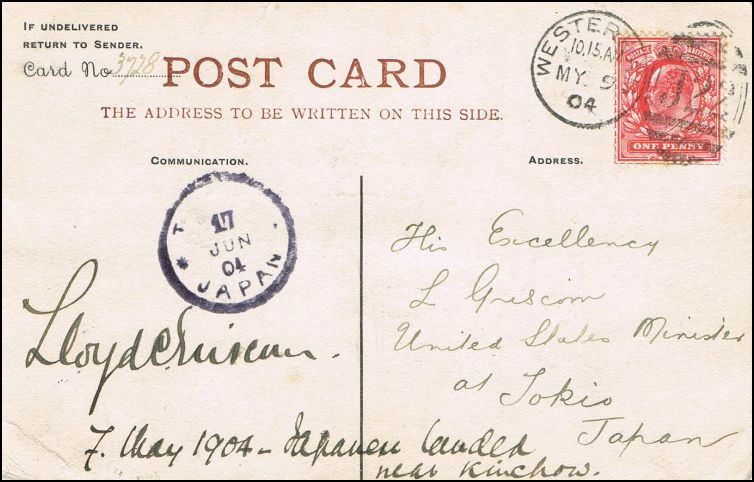 IF UNDELIVERED
RETURN TO SENDER.
Card No 3728
POST CARD
THE ADDRESS TO BE WRITTEN ON THIS SIDE.
WESTER
10.15AM
MY 9
04
POSTAGE
ONE PENNY
COMMUNICATION.
ADDRESS.
T
17
JUN
04
* JAPAN
His Excellency
L Griscom
United States Minister
at Tokio
Japan
Lloyd C Griscom.
7. May 1904 - Japanese landed
near Kinchow.